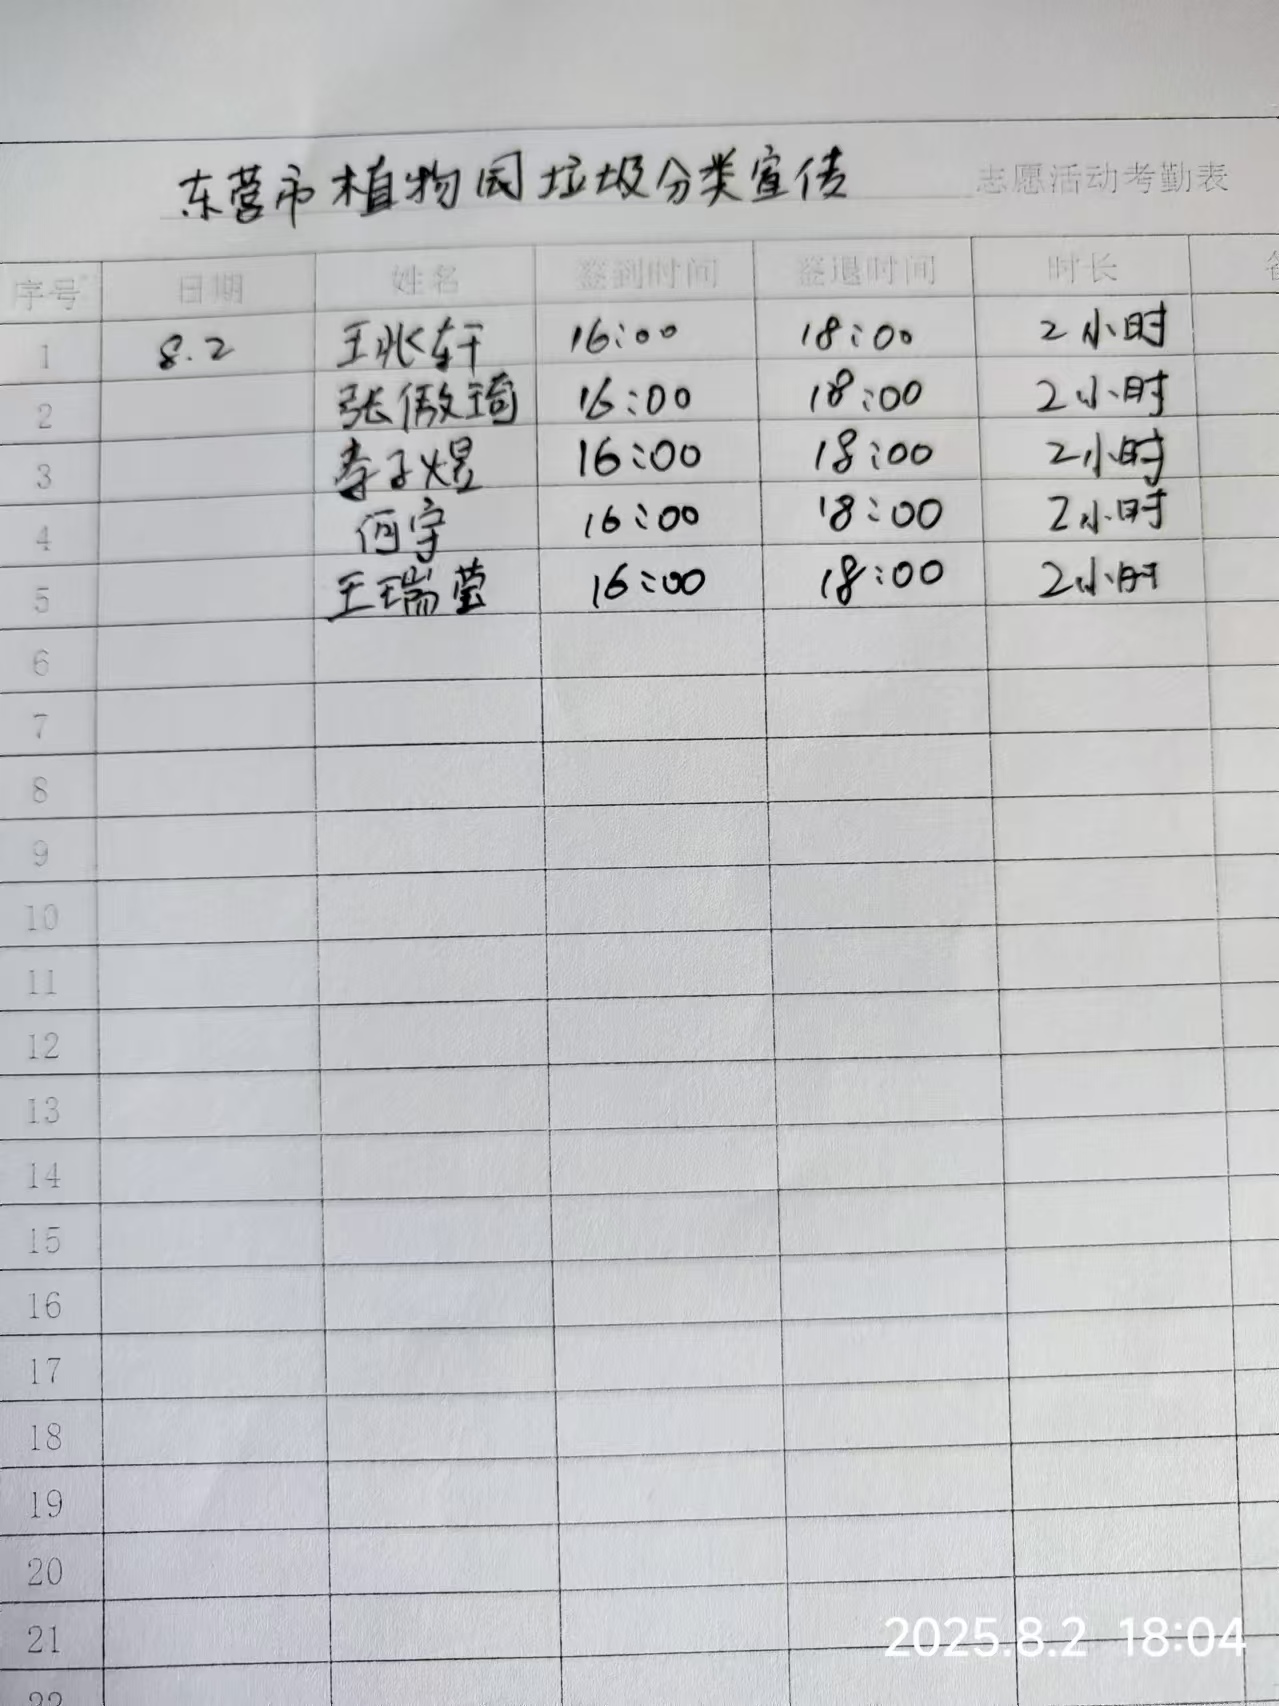 东营市植物园垃圾分类宣传 志愿活动考勤表
序号 日期 姓名 签到时间 签退时间 时长
1 8.2 王兆轩 16:00 18:00 2小时
2 张傲琦 16:00 18:00 2小时
3 李子煜 16:00 18:00 2小时
4 何宇 16:00 18:00 2小时
5 王瑞莹 16:00 18:00 2小时
6
7
8
9
10
11
12
13
14
15
16
17
18
19
20
21
22
2025.8.2 18:04